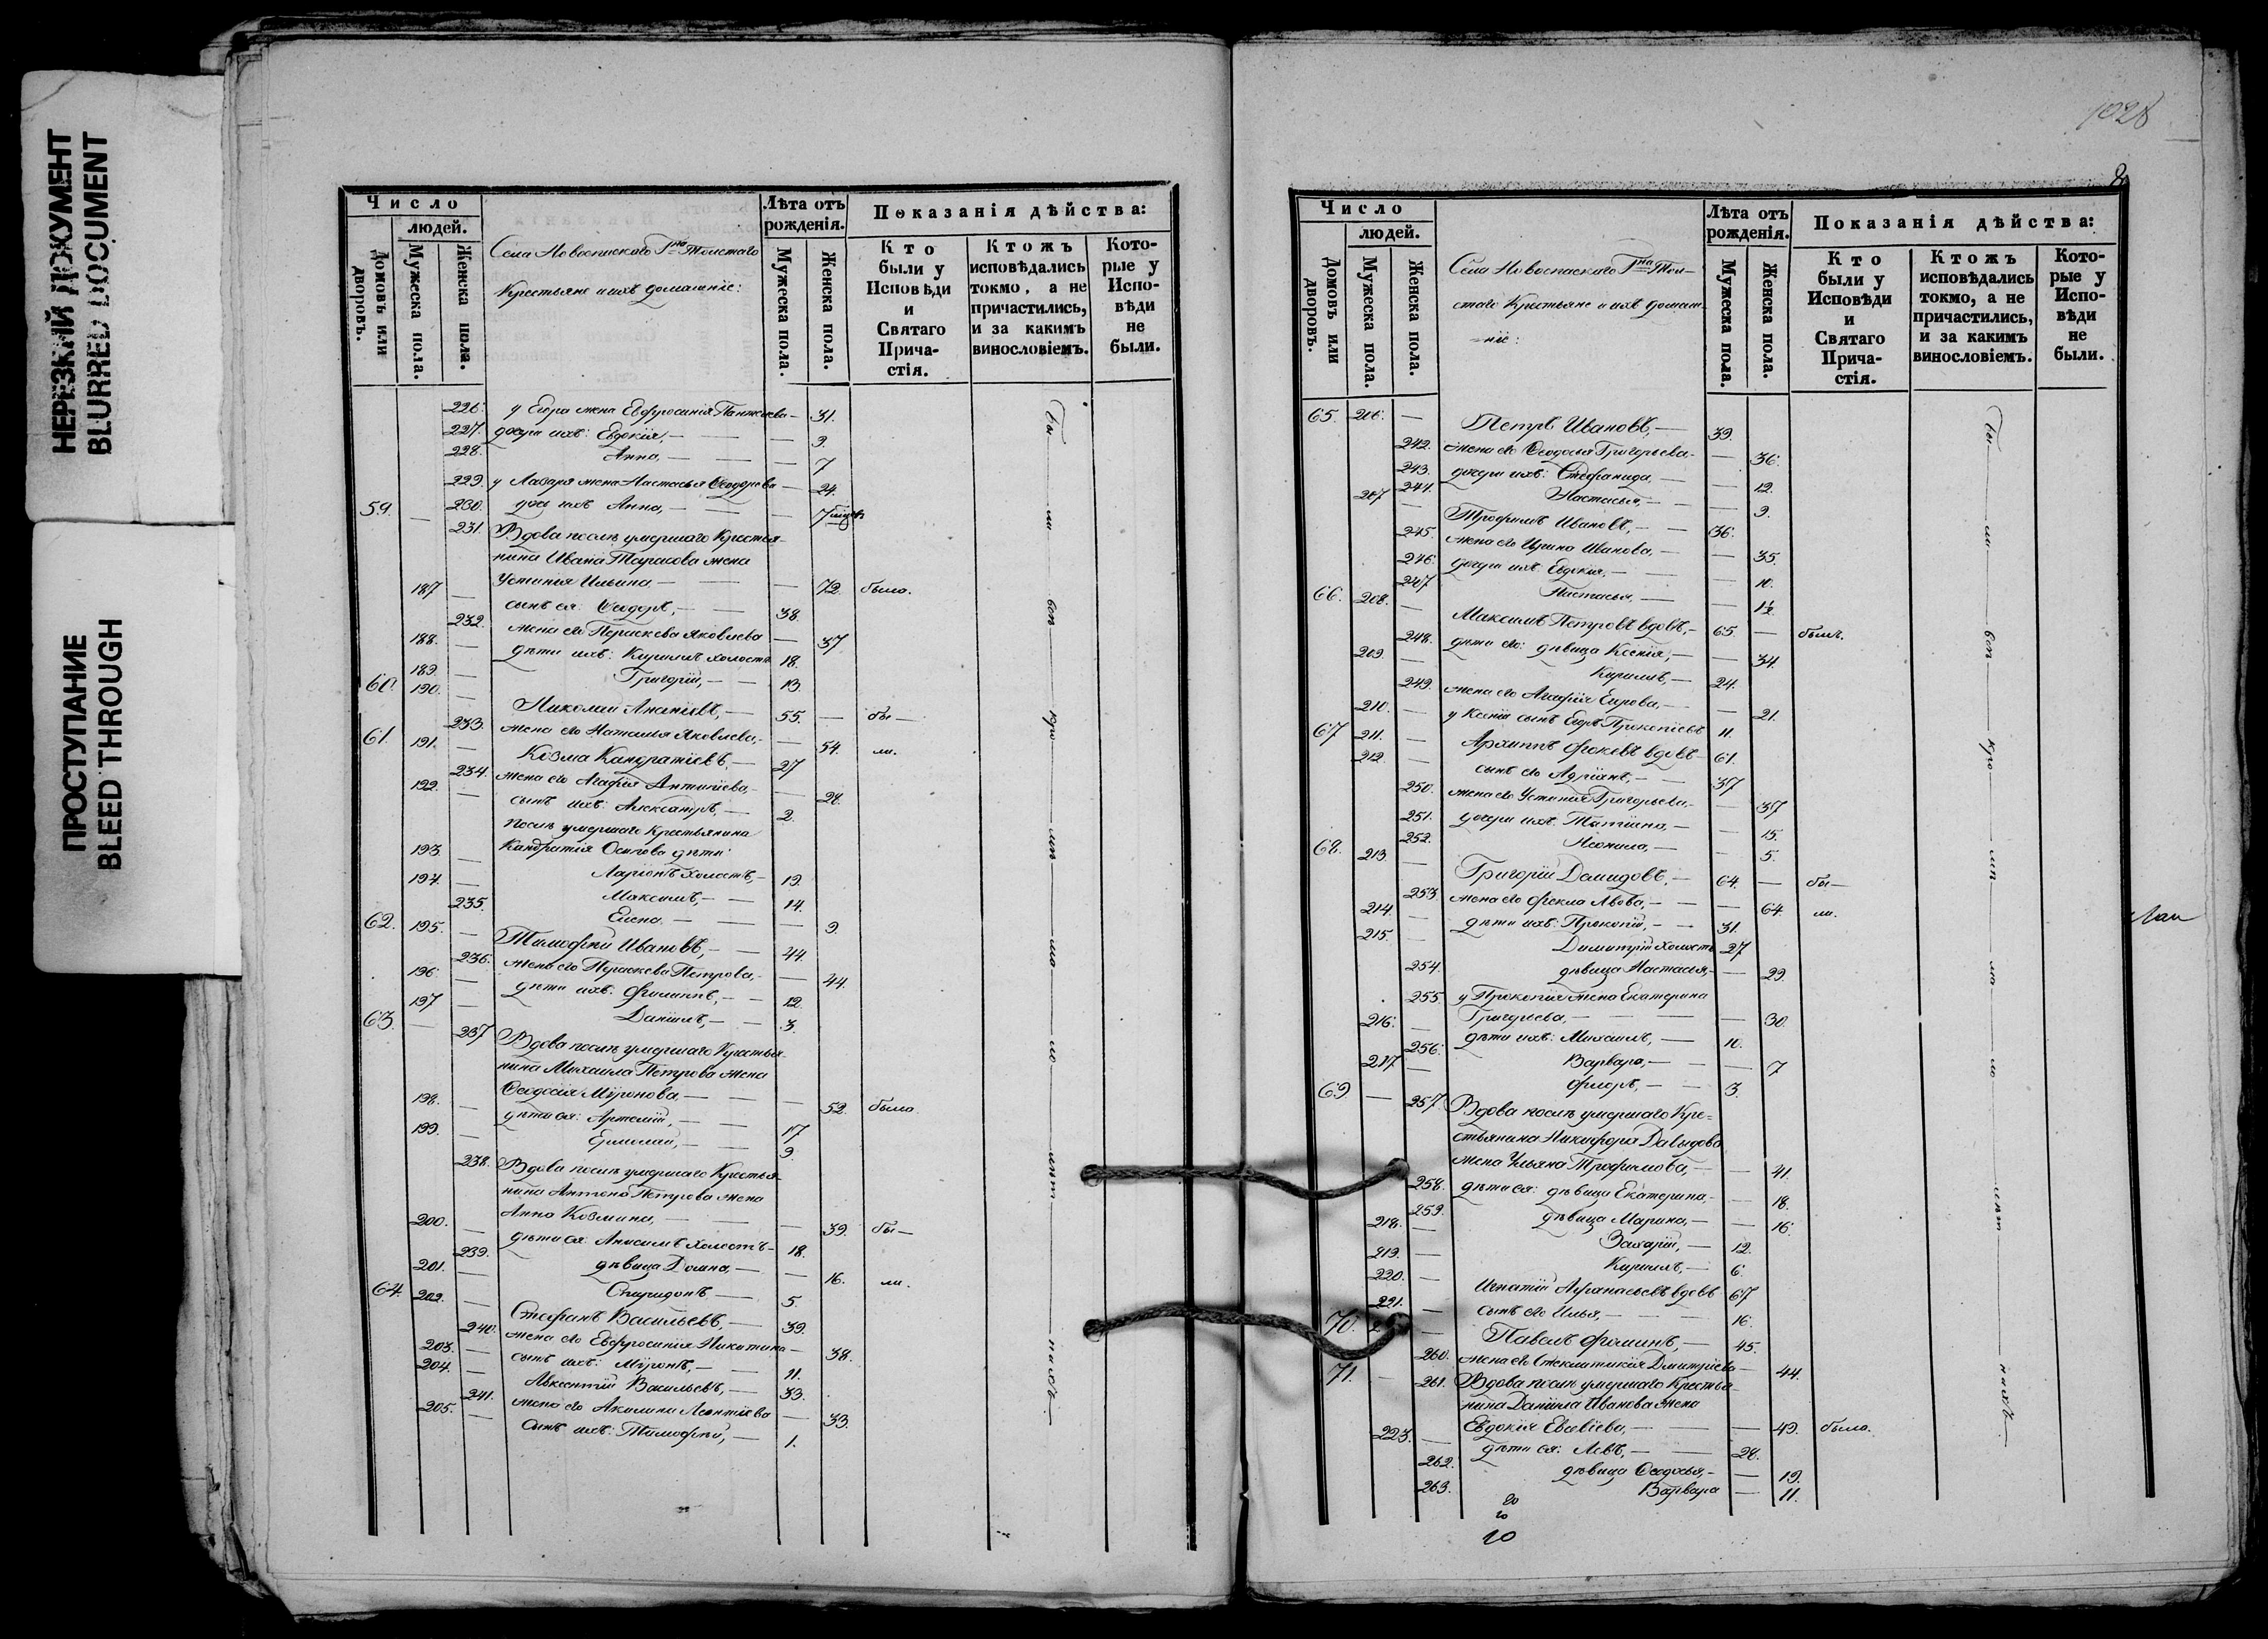 НЕРЕЗКИЙ ДОКУМЕНТ
BLURRED DOCUMENT
ПРОСТУПАНИЕ
BLEED THROUGH
Число
людей.
Домовъ или дворовъ.
Мужеска пола.
Женска пола.
Села Новоспаского Г-на Толстаго
Крестьяне и ихъ домашніе:
Лѣта отъ рожденія.
Мужеска пола.
Женска пола.
Показанія дѣйства:
Кто были у Исповѣди и Святаго Прича-стія.
Ктожъ исповѣдались токмо, а не причастились, и за какимъ винословіемъ.
Кото-рые у Испо-вѣди не были.
226. у Егора жена Евфросинія — 31.
227. дочери ихъ: Евдокія, — 9.
228. Анна, — 7
229. у Лазаря жена Настасья Ѳеодорова — 24.
230. дочь ихъ Анна, — 7
59. — 231. Вдова послѣ умершаго Крестья-
нина Ивана Тарасова жена
Устинія Ильина — 72. была.
187 — сынъ ея: Ѳеодоръ, — 38.
232. жена его Параскева Яковлева — 37
188. — дѣти ихъ: Кириллъ холостъ 18.
189. — Григорій, — 13.
60. 190. — Николай Ананіевъ, — 55. — бы —
233. жена его Наталья Яковлева, — 54. ли.
61. 191. — Козма Кандратіевъ, — 27
234. жена его Агафія Антипіева, — 28.
192. — сынъ ихъ: Александръ, — 2.
послѣ умершаго Крестьянина
Кандратія Осипова дѣти:
193. — Ларіонъ холостъ, — 19.
194. — Максимъ, — 14.
235. Елена — 9.
62. 195. — Тимофѣй Ивановъ, — 44.
236. жена его Параскева Петрова, — 44.
196. — дѣти ихъ: Филиппъ, — 12.
197 — Даніилъ, — 3.
63. — 237 Вдова послѣ умершаго Крестья-
нина Михаила Петрова жена
Ѳеодосія Мѵронова — 52. была.
198. — дѣти ея: Артемій, — 17
199. — Ермолай, — 9.
238. Вдова послѣ умершаго Крестья-
нина Антона Петрова жена
Анна Козмина, — 39. бы —
200. — дѣти ея: Анисимъ холостъ — 18.
239. дѣвица Домна, — 16. ли.
201. — Спиридонъ — 5.
64. 202. — Стефанъ Васильевъ, — 39.
240. жена его Евфросинія Никитина — 38.
203. — сынъ ихъ: Мѵронъ, — 11.
204. — Авксентій Васильевъ, — 33.
241. жена его Акилина Леонтіева — 33.
205. — сынъ ихъ: Тимофѣй, — 1.
1028
Число
людей.
Домовъ или дворовъ.
Мужеска пола.
Женска пола.
Села Новоспаского Г-на Тол-
стаго Крестьяне и ихъ домаш-
ніе:
Лѣта отъ рожденія.
Мужеска пола.
Женска пола.
Показанія дѣйства:
Кто были у Исповѣди и Святаго Прича-стія.
Ктожъ исповѣдались токмо, а не причастились, и за какимъ винословіемъ.
Кото-рые у Испо-вѣди не были.
65. 206. — Петръ Ивановъ, — 39.
242. жена его Ѳеодосья Григорьева — 36.
243. дочери ихъ: Стефанида, — 12.
244. Настасья, — 9.
207 — Трофимъ Ивановъ, — 36.
245. жена его Ирина Иванова, — 35.
246. дочери ихъ: Евдокія, — 10.
247 Настасья, — 1½
66. 208. — Максимъ Петровъ вдовъ, — 65. — былъ.
248. дѣти его: дѣвица Ксенія, — 34.
209. — Кириллъ, — 24.
249. жена его Агафія Егорова, — 21.
210. — у Ксеніи сынъ Егоръ Прокопіевъ 11.
67 211. — Архиппъ Фокевъ вдовъ — 61.
212. — сынъ его Адріянъ, — 37
250. жена его Устинія Григорьева — 37
251. дочери ихъ: Татіана, — 15.
252. Неонила, — 5.
68. 213. — Григорій Демидовъ, — 64. — бы —
253. жена его Фекла Львова, — 64. ли.
214. — дѣти ихъ: Прокопій, — 31.
215. — Димитрій холостъ 27
254. дѣвица Настасья, — 29.
255. у Прокопія жена Екатерина
Григорьева, — 30.
216. — дѣти ихъ: Михаилъ, — 10.
256. Варвара, — 7
217 — Флоръ, — 3.
69. — 257 Вдова послѣ умершаго Кре-
стьянина Никифора Давыдова
жена Ульяна Трофимова, — 41.
258. дѣти ея: дѣвица Екатерина, — 18.
259. дѣвица Марина, — 16.
218. — Захарій, — 12.
219. — Кириллъ, — 6.
220. — Игнатій Афанасьевъ вдовъ 67
221. — сынъ его Илья, — 16.
70. — Павелъ Фоминъ, — 45.
260. жена его Дмитріева — 44.
71. — 261. Вдова послѣ умершаго Крестья-
нина Даніила Иванова жена
Евдокія Евсевіева, — 49. была.
223. — дѣти ея: Левъ, — 28.
262. дѣвица Ѳеодосья, — 19.
263. Варвара — 11.
20